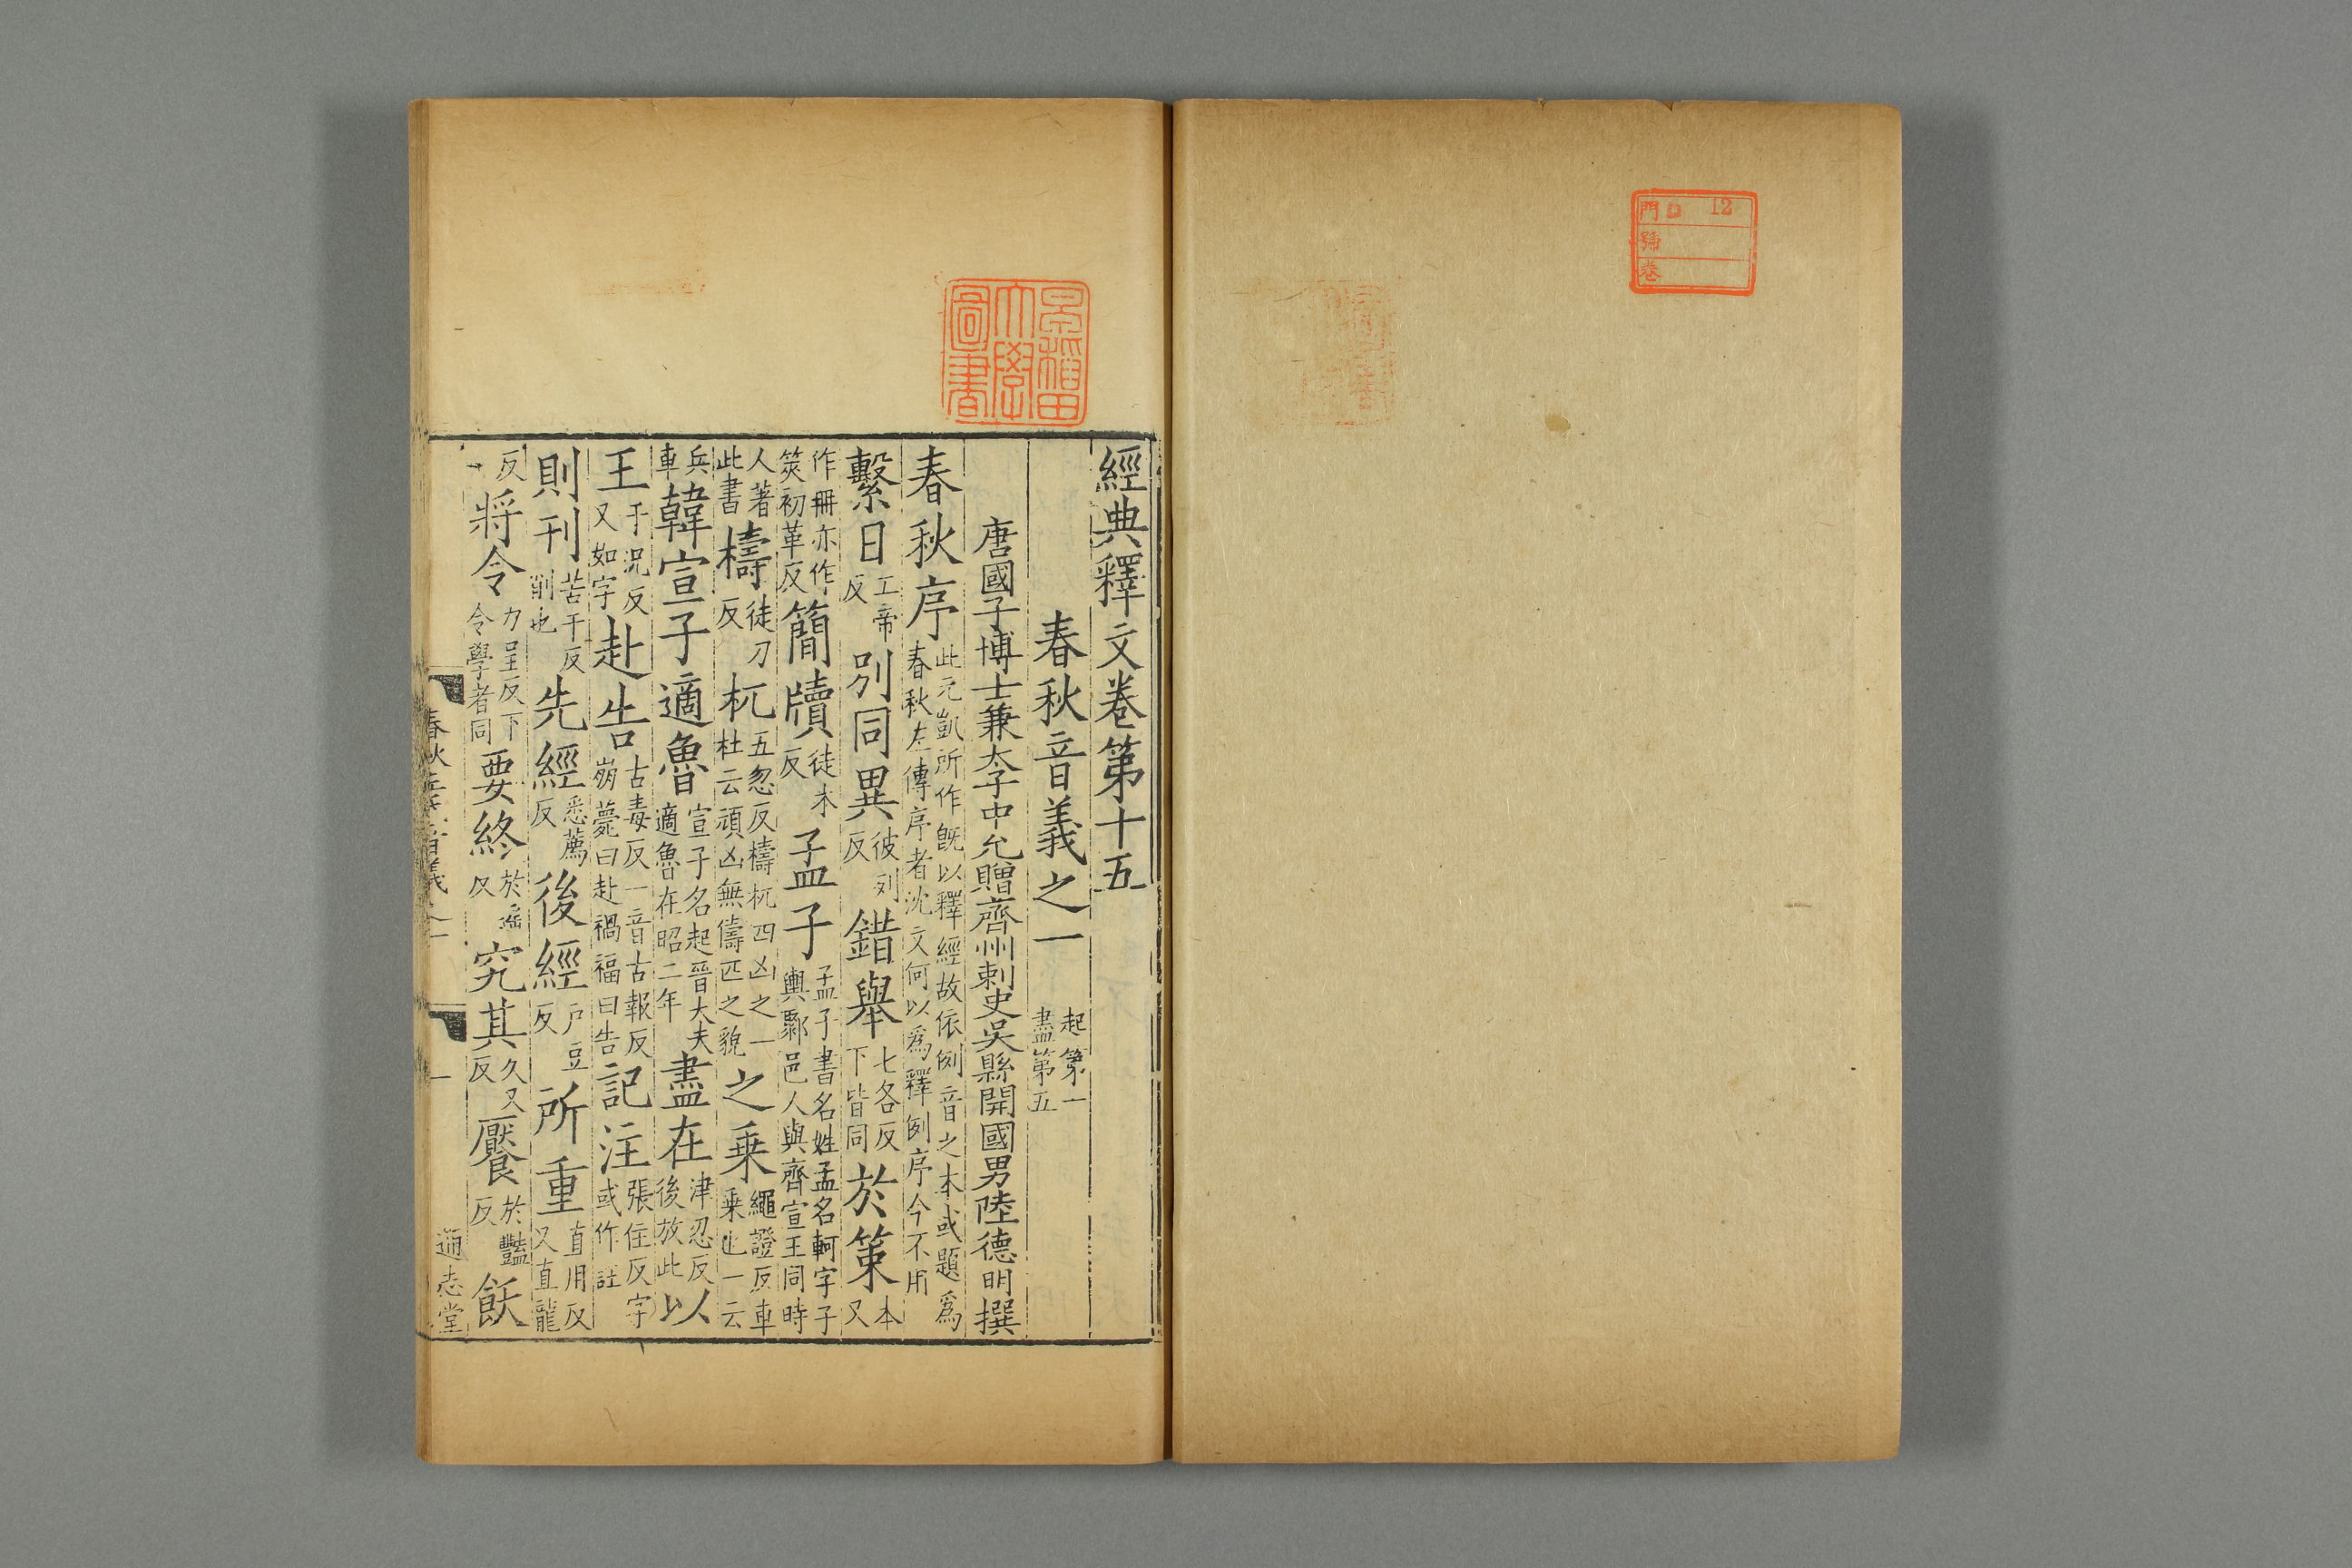 門 口 12
號
卷
早稲田
大學
圖書
經典釋文卷第十五
春秋音義之一 起第一盡第五
唐國子博士兼太子中允贈齊州刺史吳縣開國男陸德明撰
春秋序 此元凱所作既以釋經故依例音之本或題爲春秋左傳序者沈文何以爲釋例序今不用
繫日 工帝反 別同異 彼列反 錯舉 七各反下皆同 於策 本又
作冊亦作筴初革反 簡牘 徒木反 孟子 孟子書名姓孟名軻字子輿鄒邑人與齊宣王同時
人著此書 檮 徒刀反 杌 五忽反檮杌四凶之一杜云頑凶無儔匹之貌 之乗 繩證反車乗也一云
兵車 韓宣子適魯 宣子名起晉大夫適魯在昭二年 盡在 津忍反後放此 以
王 于況反又如字 赴告 古毒反一音古報反崩薨曰赴禍福曰告 記注 張住反字或作註
則刊 苦干反削也 先經 悉薦反 後經 戶豆反 所重 直用反又直龍
反 將令 力呈反下令學者同 要終 於遥反 究其 久又反 饜 於豔反 飫
春秋左氏音義之一
一
通志堂